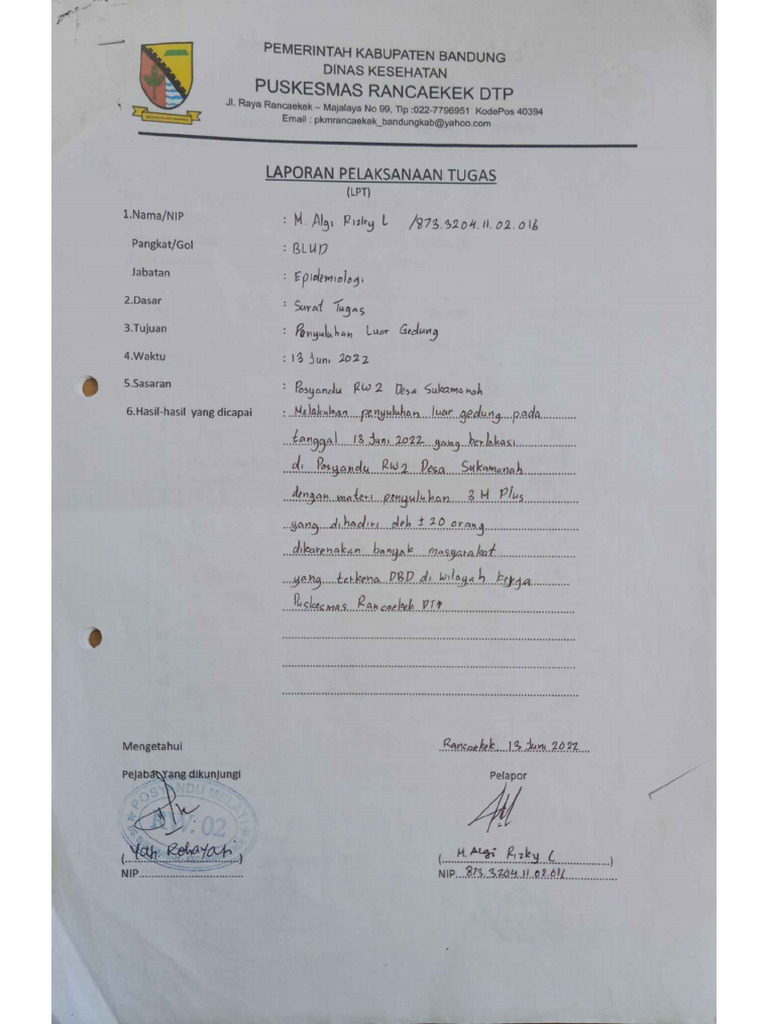 PEMERINTAH KABUPATEN BANDUNG
DINAS KESEHATAN
PUSKESMAS RANCAEKEK DTP
Jl. Raya Rancaekek – Majalaya No 99, Tlp :022-7796951 KodePos 40394
Email : pkmrancaekek_bandungkab@yahoo.com
LAPORAN PELAKSANAAN TUGAS
(LPT)
1.Nama/NIP : M. Algi Rizky L /873.3204.11.02.016
Pangkat/Gol : BLUD
Jabatan : Epidemiologi
2.Dasar : Surat Tugas
3.Tujuan : Penyuluhan Luar Gedung
4.Waktu : 13 Juni 2022
5.Sasaran : Posyandu RW2 Desa Sukamanah
6.Hasil-hasil yang dicapai : Melakukan penyuluhan luar gedung pada
tanggal 13 Juni 2022 yang berlokasi
di Posyandu RW2 Desa Sukamanah
dengan materi penyuluhan 3M Plus
yang dihadiri oleh ± 20 orang
dikarenakan banyak masyarakat
yang terkena DBD di wilayah kerja
Puskesmas Rancaekek DTP
Mengetahui
Rancaekek, 13 Juni 2022
Pejabat Yang dikunjungi
Pelapor
POSYANDU MELATI
RW. 02
(Yati Rohayati)
(M. Algi Rizky L)
NIP.
NIP. 873.3204.11.02.016